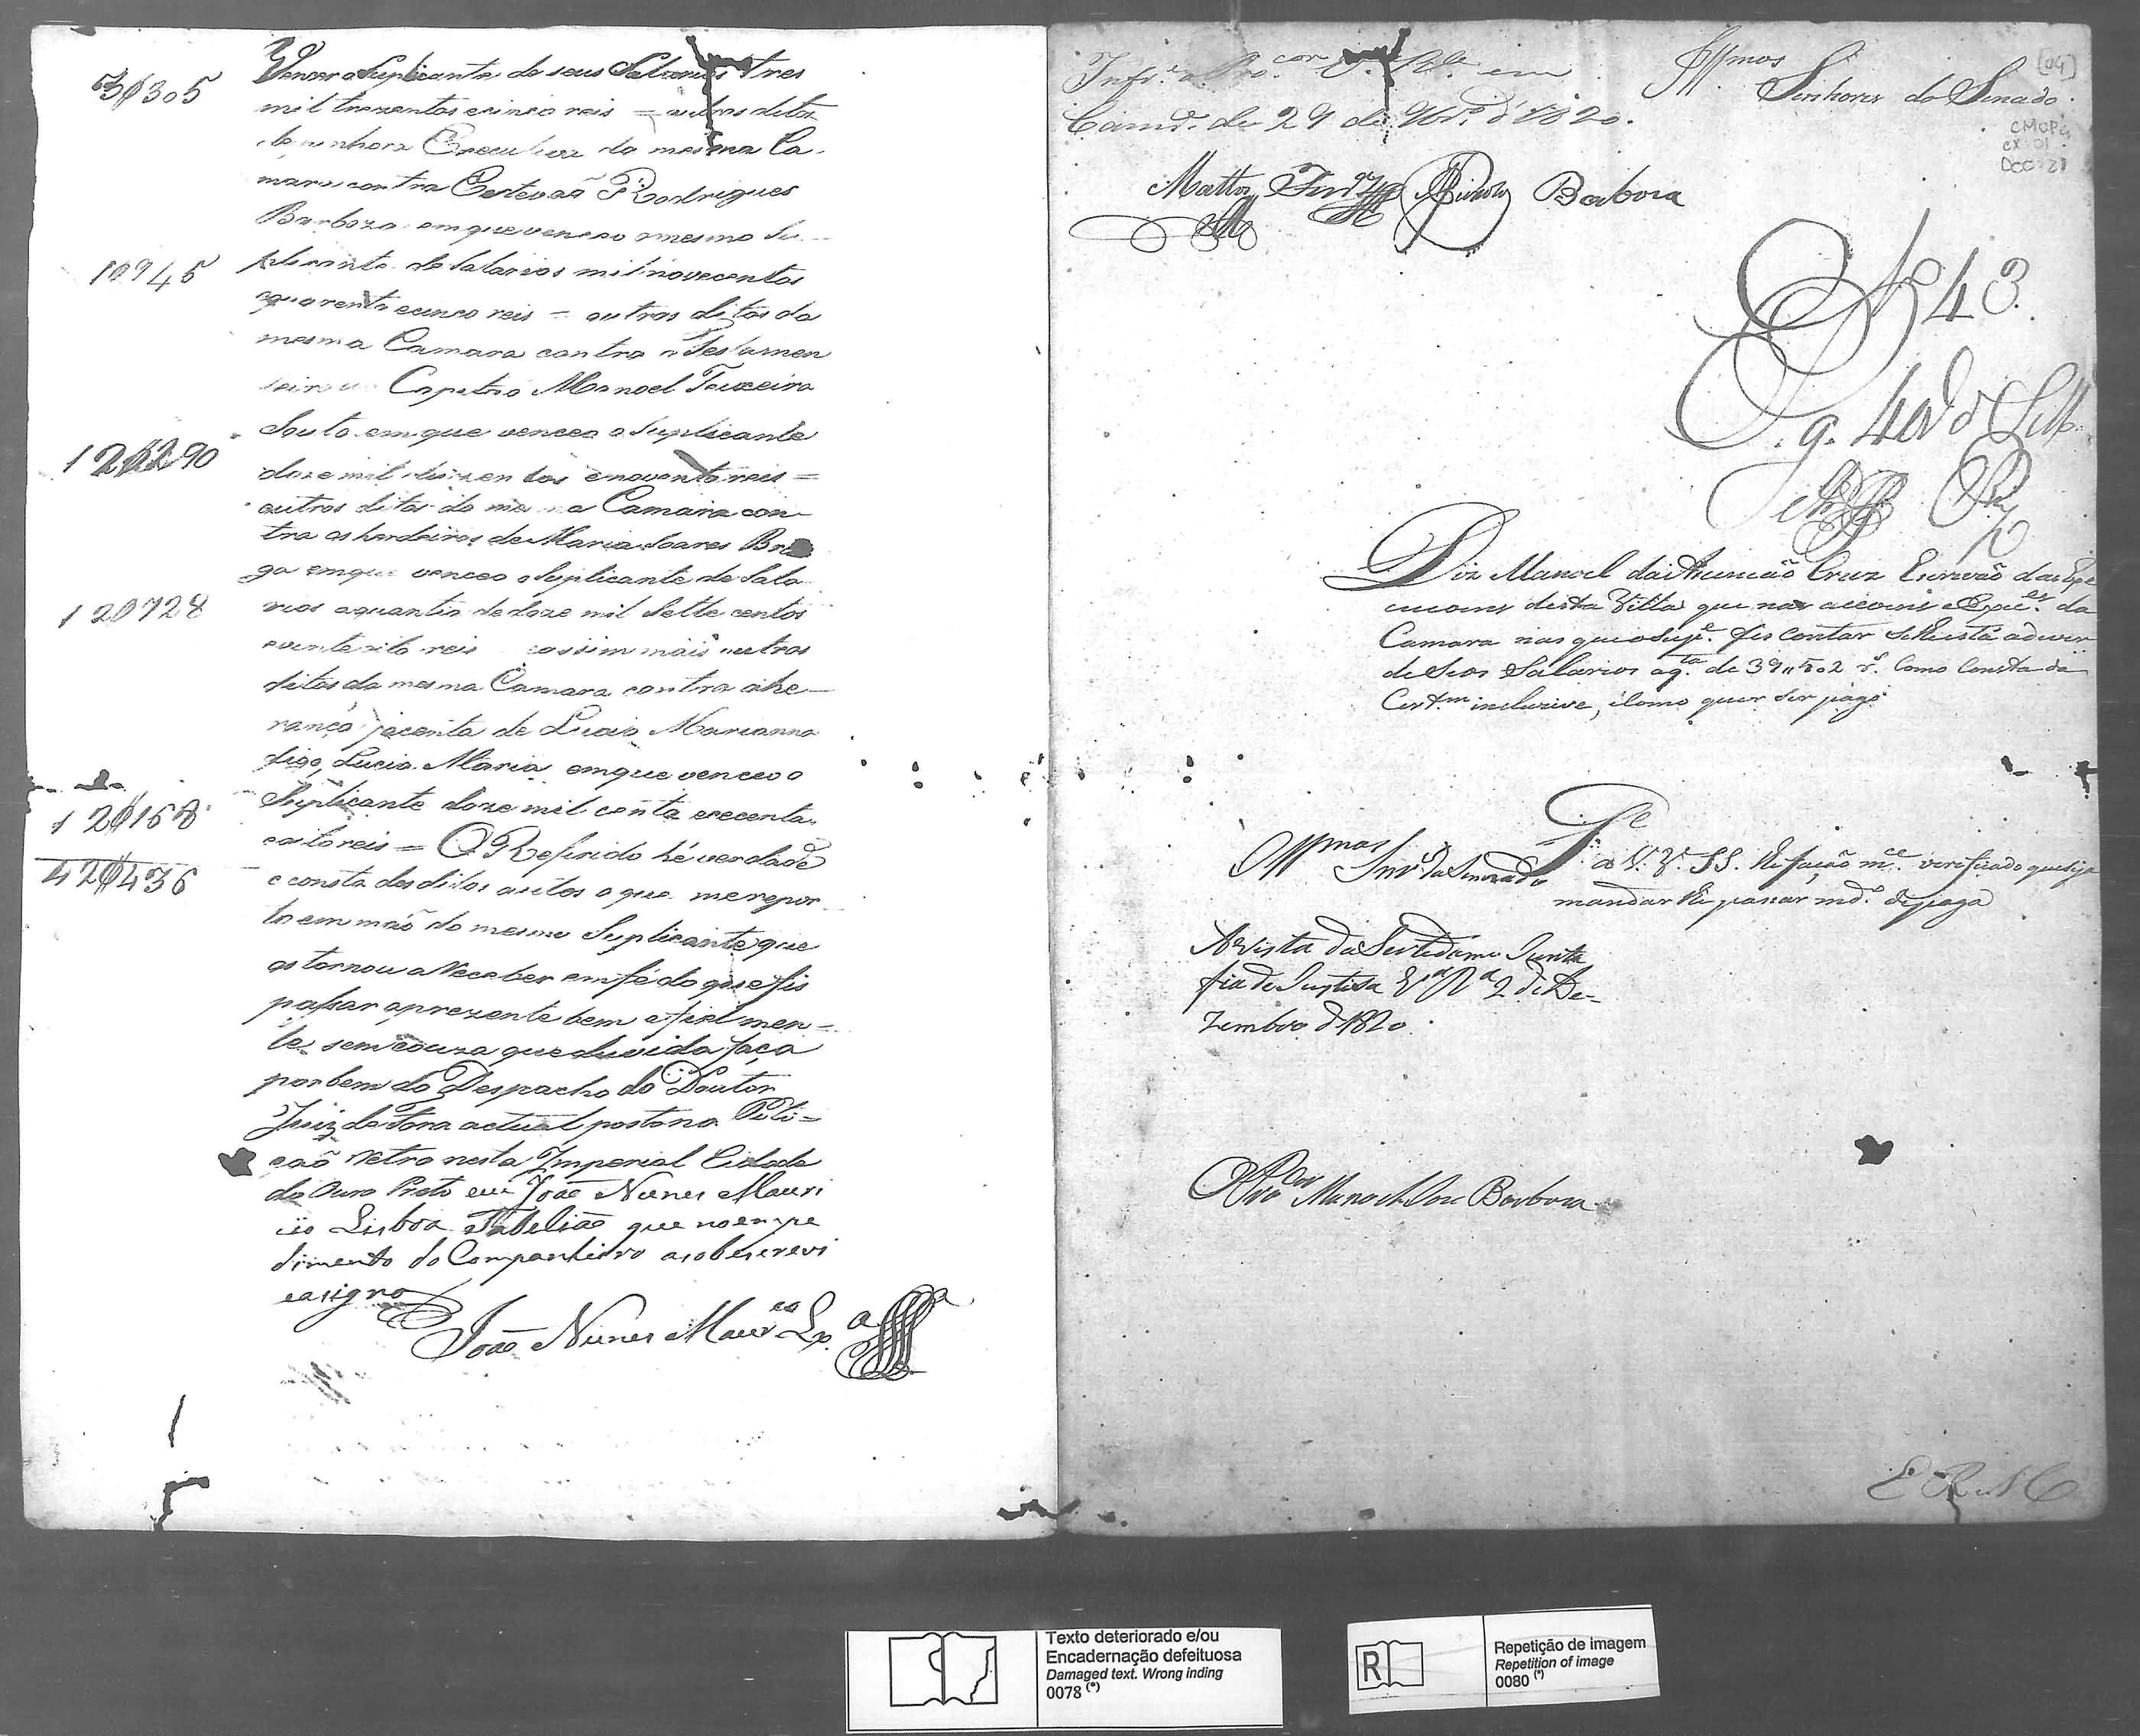 3$305
Vencer o Suplicante de seus Salarios tres
mil trezentos e cinco reis = outros ditos
de penhora Executiva da mesma Ca-
mara contra Estevaõ Rodrigues
Barboza em que venceo o mesmo Su-
1$945
plicante de Salarios mil novecentos
e quarenta e cinco reis = outros ditos da
mesma Camara contra o Testamen
teiro Capitaõ Manoel Teixeira
Souto em que venceo o Suplicante
12$290
doze mil duzentos e noventa reis =
outros ditos da mesma Camara con-
tra os herdeiros de Maria Soares Bra
ga em que venceo o Suplicante de Sala
12$728
rios a quantia de doze mil Sette centos
e vinte oito reis e assim mais outros
ditos da mesma Camara contra a he-
rança jacente de Lucia Marianna
digo, Lucia Maria em que venceo o
12$168
Suplicante doze mil cento e secenta
e oito reis = O Referido hé verdade
42$436
e consta dos ditos autos a que me repor
to em maõ do mesmo Suplicante que
os tornou a Receber em fé do que fis
passar a prezente bem e fiel men-
te sem couza que duvida faça
por bem do Despacho do Doutor
Juiz de Fora actual posto na Peti=
çaõ Retro nesta Imperial Cidade
do Ouro Preto eu Joaõ Nunes Mauri
cio Lisboa Tabeliaõ que no empe
dimento do Companheiro a sobescrevi
e asigno
Joaõ Nunes Maur.co Lx.a
Inf.e o Pro.cor em
Cam.a de 29 de 9br.o d'1820.
Mattos Barboza
Illmos
Senhores do Senado
[04]
CMOP
cx 01
DOC 21
N 43
Diz Manoel da Asumcaõ Cruz Escrivaõ das Exe
cucoens desta Villa que nas accoins e Execões da
Camara nas que o Sup.e fes contar Se lhe está a dever
de Seos Salarios a q.ta de 39,,502 r.s como consta da
Cert.m incluzive, e como quer ser pago
P.
a V. S. SS. lhe façaõ m.ce verificado que seja
mandar lhe passar md.o de paga
Illmos Snr.s do Senado
A vista da Sertidam Junta
fia de Justisa V.a R.a 2 de De-
zembro d'1820
O Pro.dor Manoel Joze Barboza
E. R. M.ce
Texto deteriorado e/ou
Encadernação defeituosa
Damaged text. Wrong inding
0078 (*)
R
Repetição de imagem
Repetition of image
0080 (*)